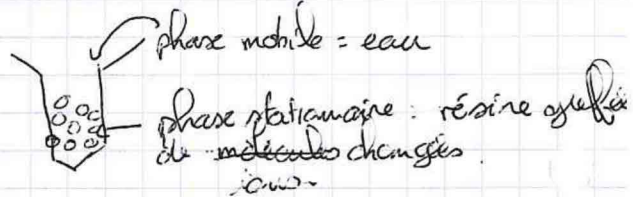 phase mobile = eau
phase stationnaire : résine greffée
de molécules chargées
ions